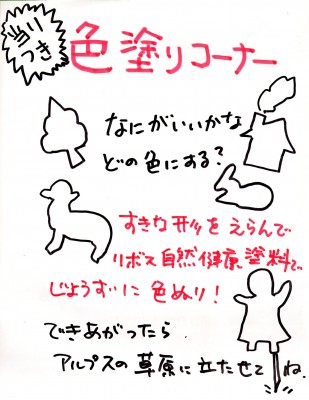 当り
つき
色塗りコーナー
なにがいいかな
どの色にする?
すきな形をえらんで
リボス自然健康塗料で
じょうずに色ぬり!
できあがったら
アルプスの草原に立たせてね.